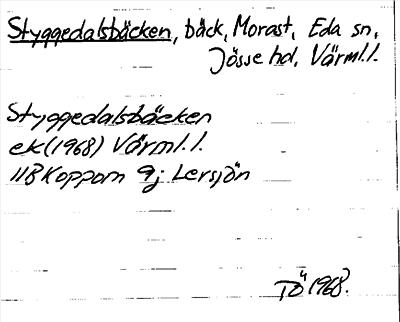 Styggedalsbäcken, bäck, Morast, Eda sn,
Jösse hd, Värml.l.
Styggedalsbäcken
ek(1968) Värml.l.
11B Koppom 9j Lersjön
TÖ 1968.